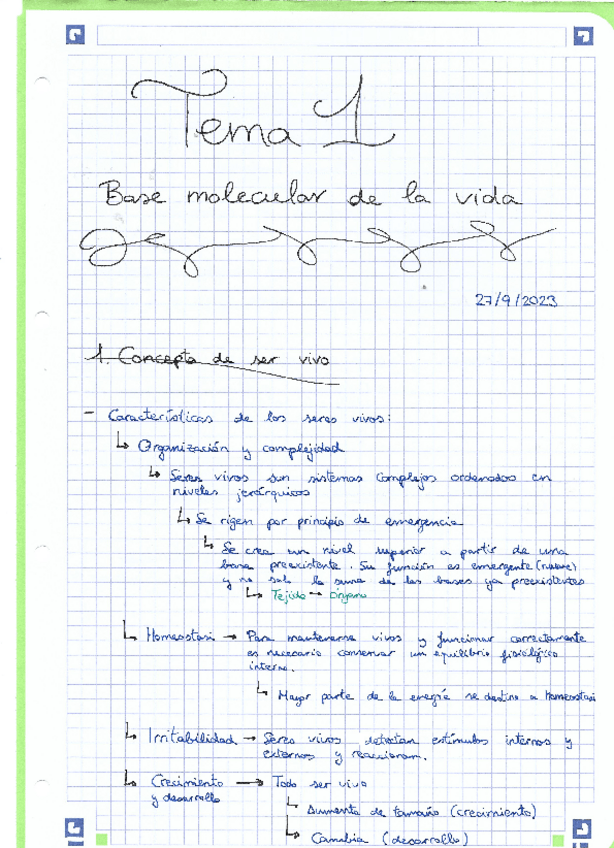 Tema 1
Base molecular de la vida
27/9/2023
1. Concepto de ser vivo
- Características de los seres vivos:
↳ Organización y complejidad
↳ Seres vivos son sistemas complejos ordenados en
niveles jerárquicos
↳ Se rigen por principio de emergencia
↳ Se crea un nivel superior a partir de una
base preexistente. Su función es emergente (nueva)
y no solo la suma de las bases ya preexistentes
↳ Tejido → órgano
↳ Homeostasi → Para mantenerse vivos y funcionar correctamente
es necesario conservar un equilibrio fisiológico
interno.
↳ Mayor parte de la energía se destina a homeostasi
↳ Irritabilidad → Seres vivos detectan estímulos internos y
externos y reaccionan.
↳ Crecimiento → Todo ser vivo
y desarrollo
↳ Aumenta de tamaño (crecimiento)
↳ Cambia (desarrollo)